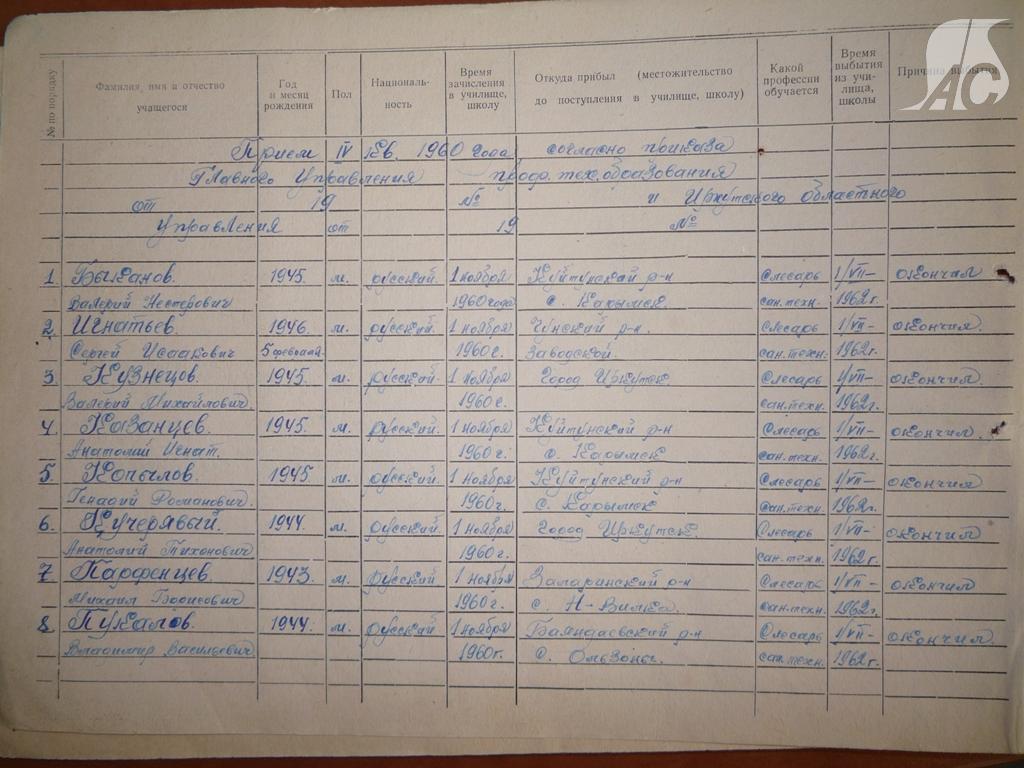 № по порядку
Фамилия, имя и отчество учащегося
Год и месяц рождения
Пол
Националь-ность
Время зачисления в училище, школу
Откуда прибыл (местожительство до поступления в училище, школу)
Какой профессии обучается
Время выбытия из учи-лища, школы
Причина выбытия
АС
Прием IV кв. 1960 года согласно приказа
Главного Управления проф. тех. образования
от 19 № и Иркутского областного
Управления от 19 №
1. Быканов. 1945. м. русский. 1 ноября Куйтунский р-н Слесарь 1/VII- окончил
Валерий Нестерович 1960 года с. Карымск. сан.техн. 1962 г.
2. Игнатьев. 1946. м. русский. 1 ноября Чунский р-н. Слесарь 1/VII- окончил.
Сергей Исаакович 5 февраля 1960 г. Заводской. сан.техн. 1962 г.
3. Кузнецов. 1945. м. русский. 1 ноября Город Иркутск. Слесарь 1/VII- окончил.
Валерий Михайлович. 1960 г. сан.техн. 1962 г.
4. Казанцев. 1945. м. русский. 1 ноября Куйтунский р-н Слесарь 1/VII- окончил.
Анатолий Игнат. 1960 г. с. Карымск. сан.техн. 1962 г.
5. Копылов. 1945. м. русский. 1 ноября Куйтунский р-н Слесарь 1/VII- окончил
Генадий Романович. 1960 г. с. Карымск сан.техн. 1962 г.
6. Кучерявый. 1944. м. русский. 1 ноября Город Иркутск. Слесарь 1/VII- окончил
Анатолий Тихонович 1960 г. сан.техн. 1962 г.
7 Парфенцев. 1943. м. русский. 1 ноября Заларинский р-н Слесарь 1/VII- окончил
Михаил Борисович 1960 г. с. сан.техн. 1962 г.
8. Пукалов. 1944. м. русский. 1 ноября Баяндаевский р-н Слесарь 1/VII- окончил.
Владимир Васильевич. 1960 г. с. Ользоны. сан.техн. 1962 г.